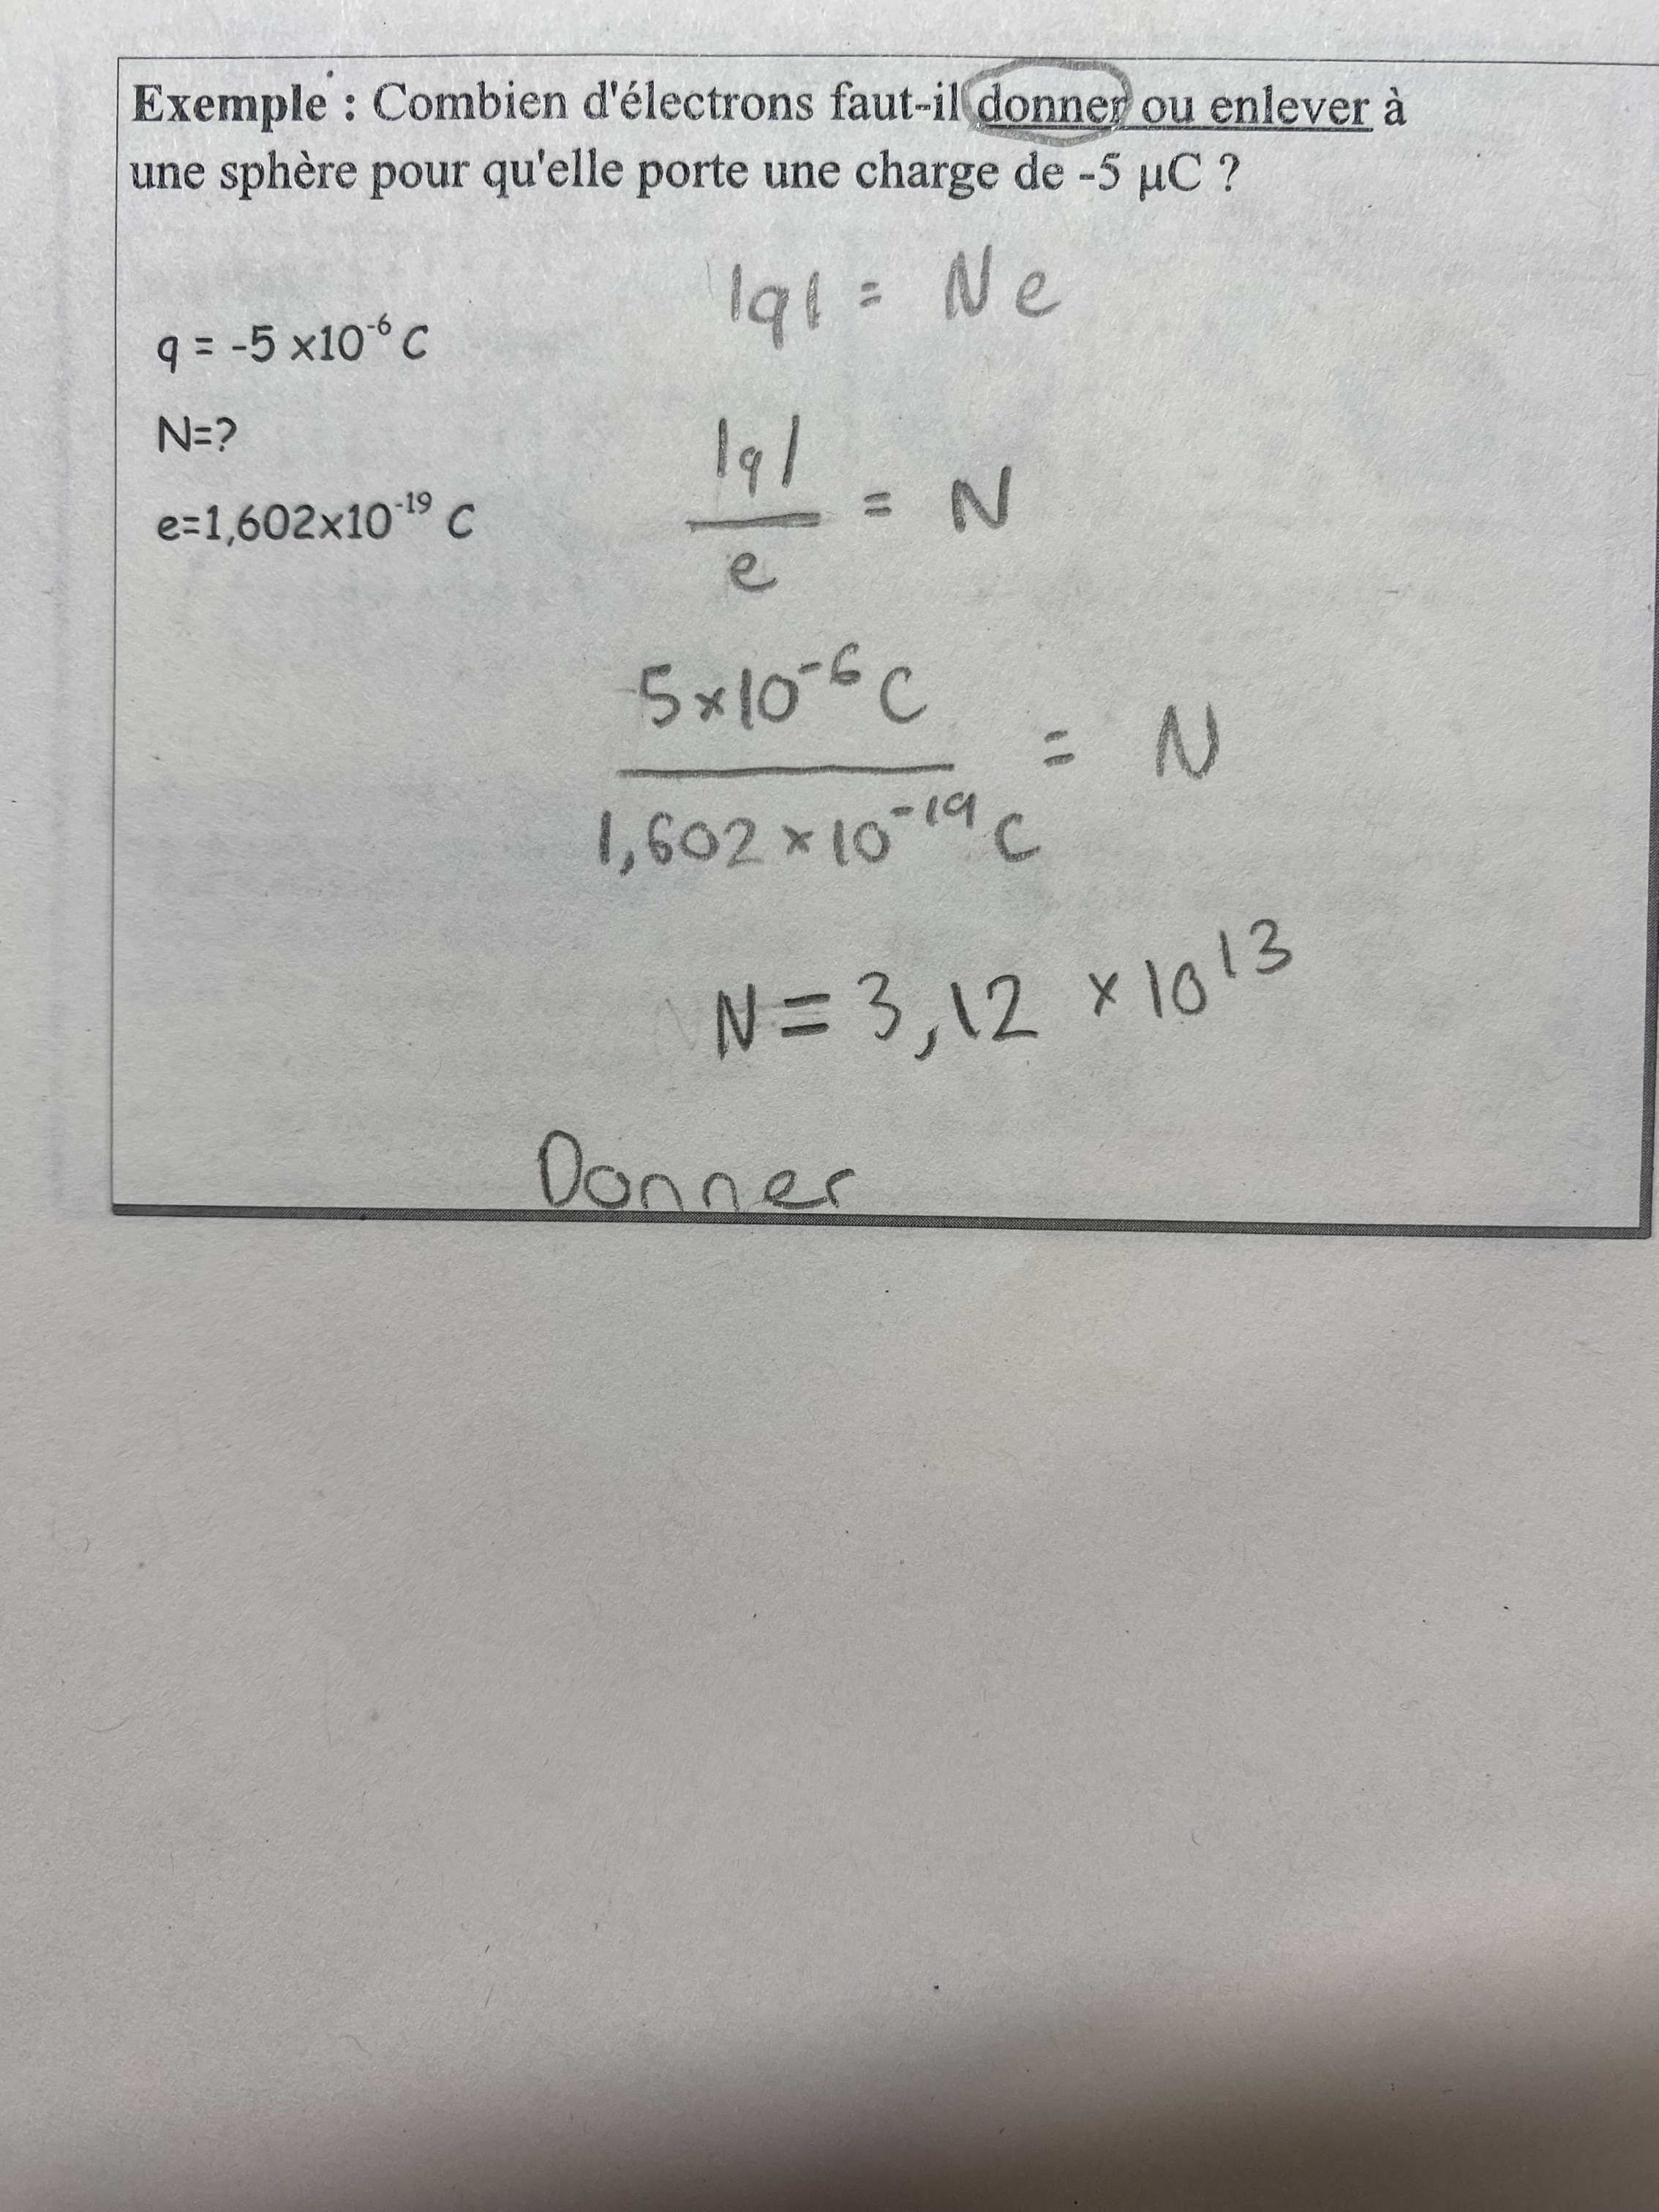 Exemple : Combien d'électrons faut-il donner ou enlever à
une sphère pour qu'elle porte une charge de -5 µC ?
|q| = Ne
q = -5 x10⁻⁶ C
N=?
|q|/e = N
e=1,602x10⁻¹⁹ C
5x10⁻⁶ C
= N
1,602 x 10⁻¹⁹ C
N = 3,12 x 10¹³
Donner